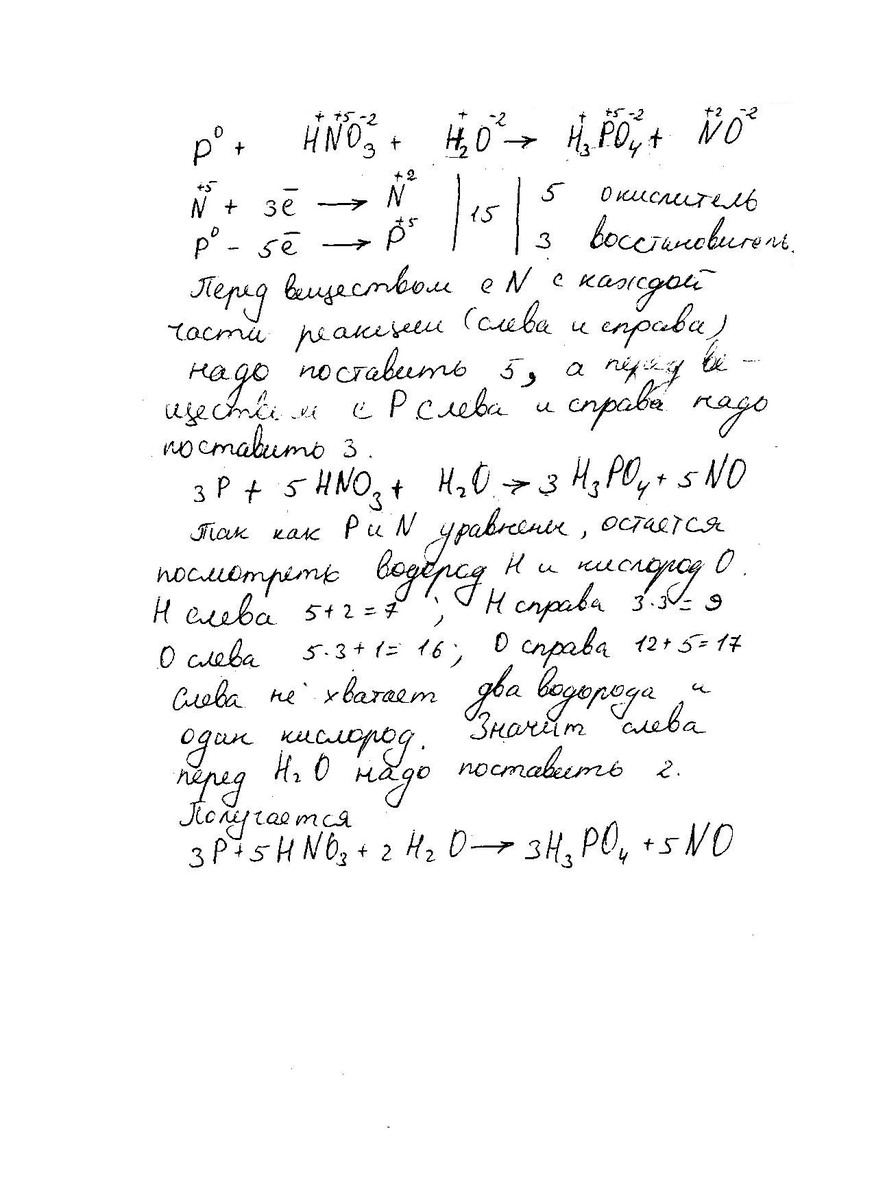 P⁰ + H⁺N⁺⁵O₃⁻² + H₂⁺O⁻² → H₃⁺P⁺⁵O₄⁻² + N⁺²O⁻²
N⁺⁵ + 3ē → N⁺² | 15 | 5 окислитель
P⁰ - 5ē → P⁺⁵ | 3 восстановитель.
Перед веществом с N с каждой
части реакции (слева и справа)
надо поставить 5, а перед ве-
ществом с P слева и справа надо
поставить 3.
3P + 5HNO₃ + H₂O → 3H₃PO₄ + 5NO
Так как P и N уравнены, остается
посмотреть водород H и кислород O.
H слева 5+2=7 ; H справа 3·3=9
O слева 5·3+1= 16; O справа 12+5=17
Слева не хватает два водорода и
один кислород. Значит слева
перед H₂O надо поставить 2.
Получается
3P+5HNO₃+2H₂O → 3H₃PO₄+5NO